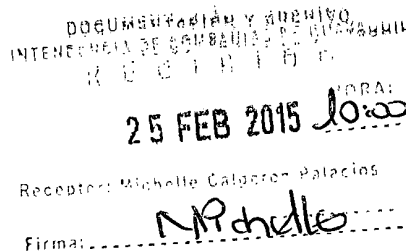 DOCUMENTACIÓN Y ARCHIVO
INTENDENCIA DE COMPAÑIAS DE GUAYAQUIL
RECIBIDO
HORA:
25 FEB 2015 10:00
Receptor: Michelle Calderon Palacios
Firma: Michelle